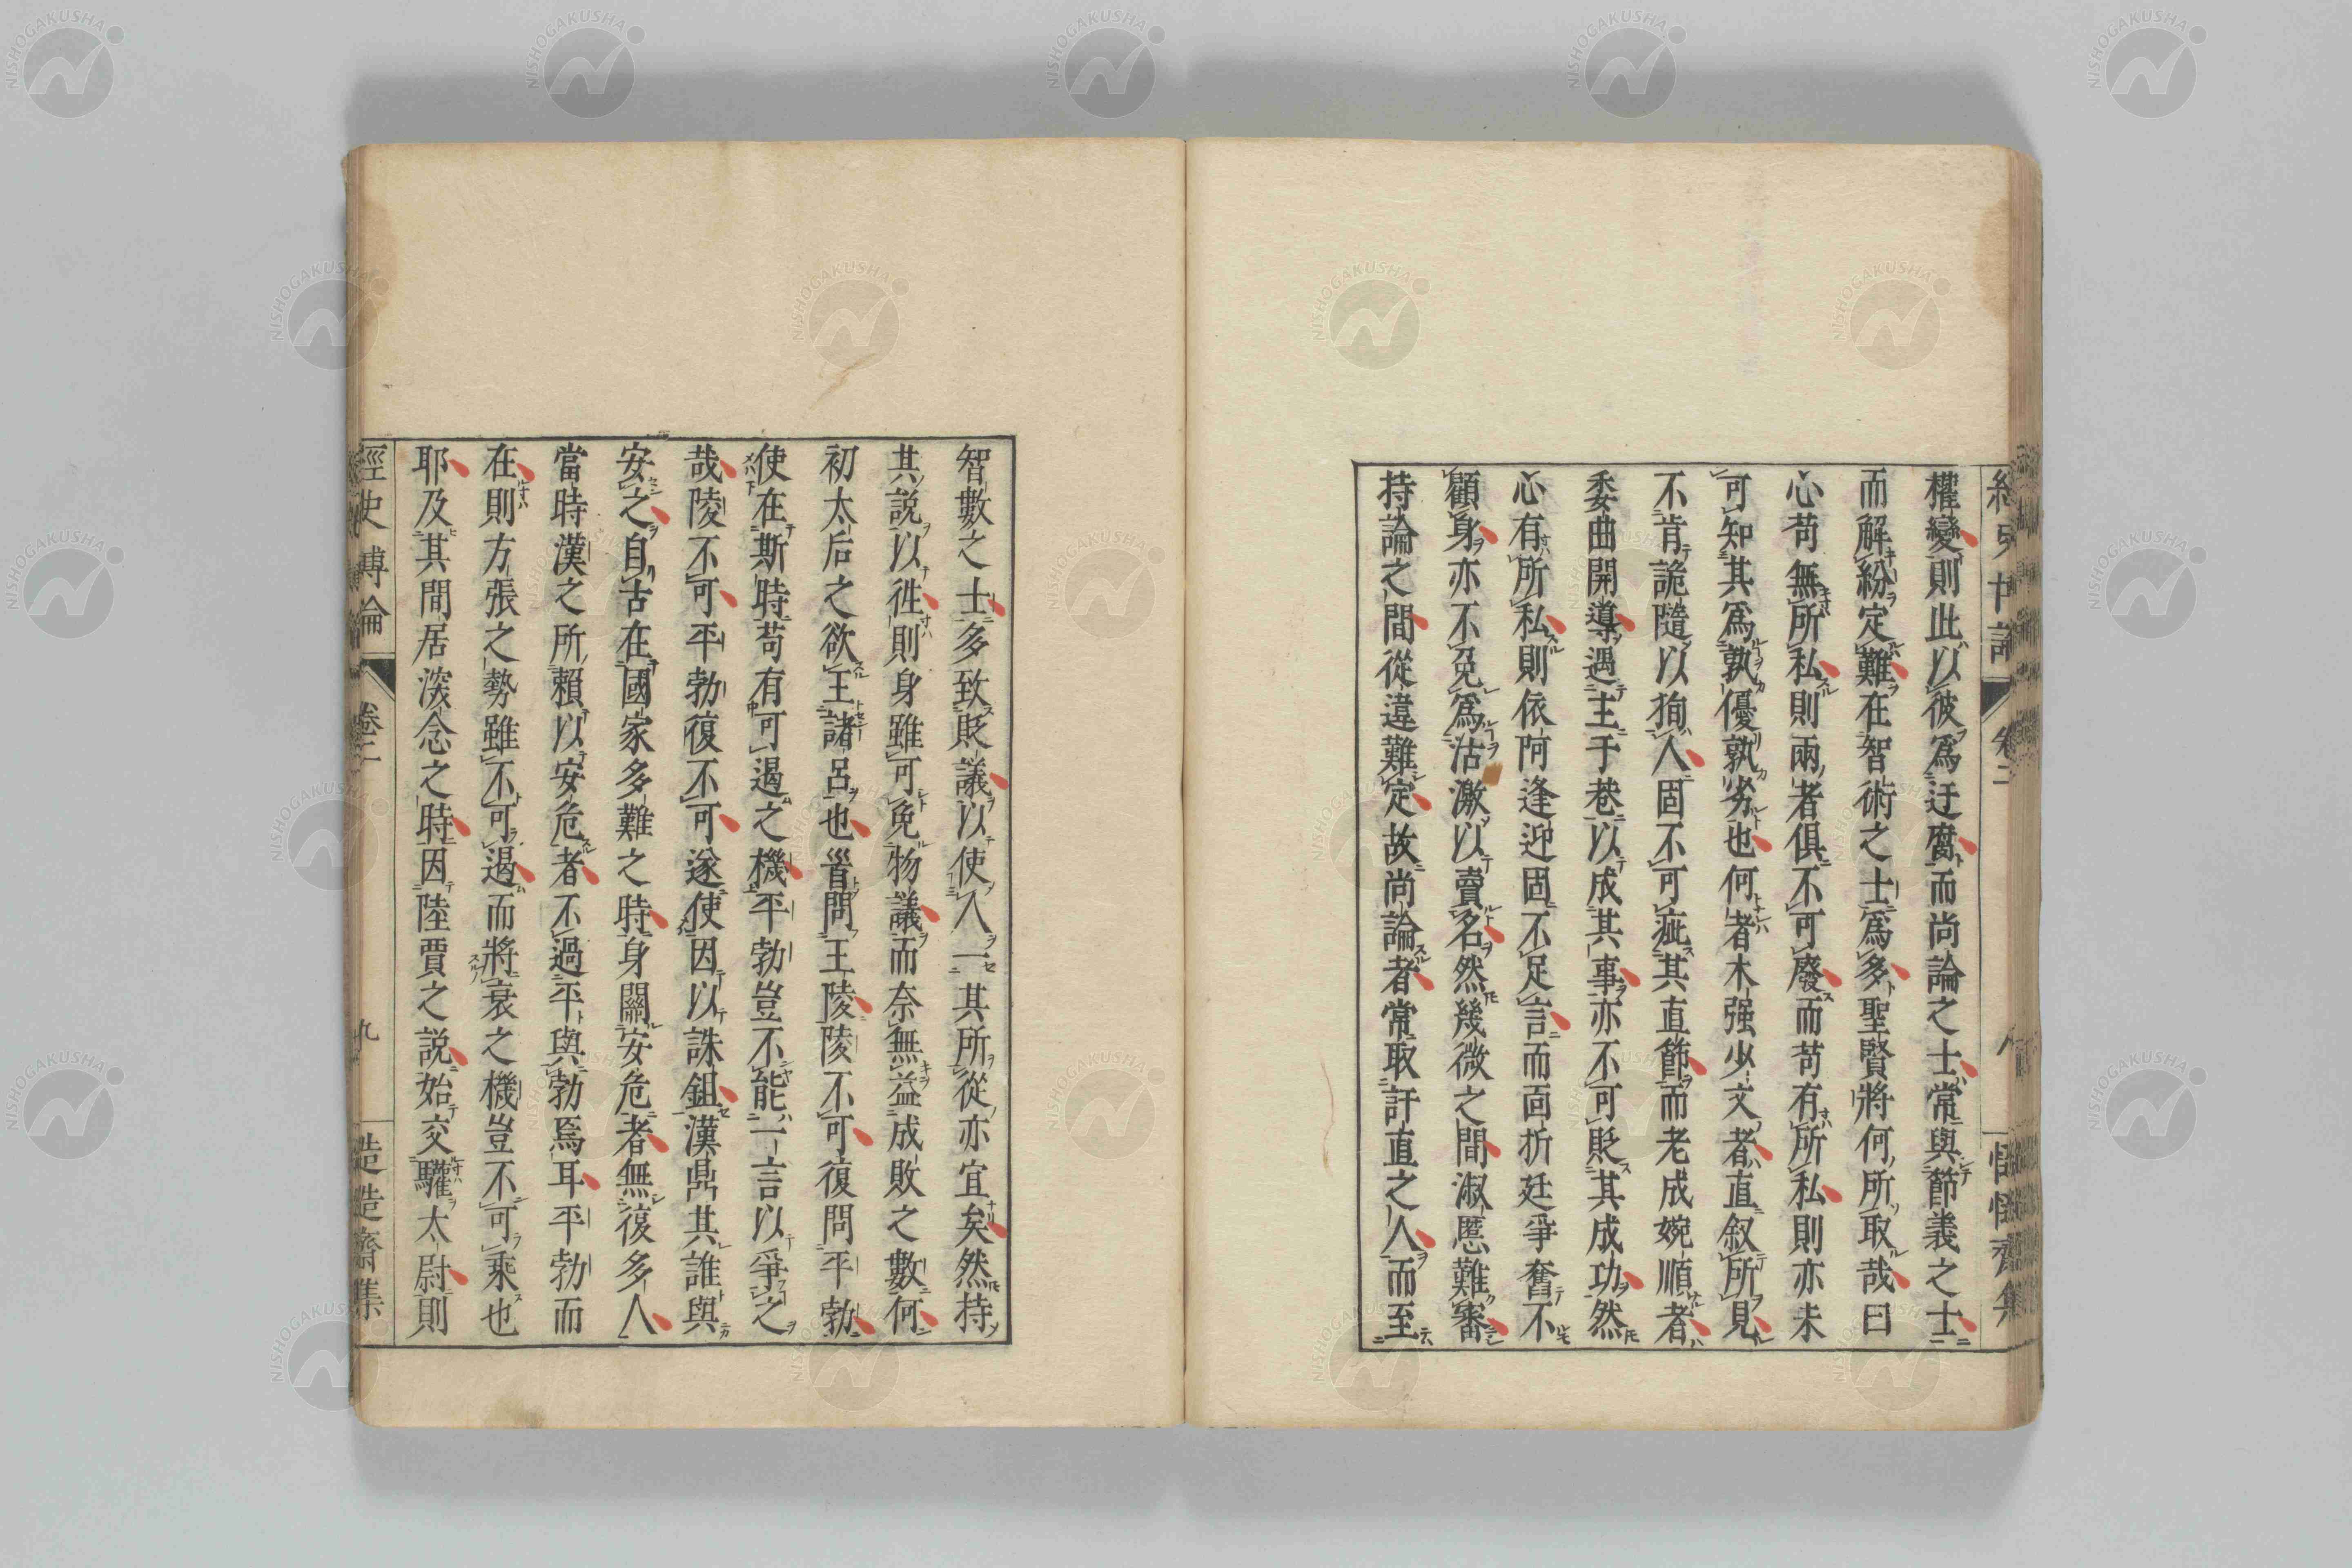 權變則此以彼爲迂腐而尚論之士常與節義之士
而解紛定難在智術之士爲多聖賢將何所取哉曰
心苟無所私則兩者俱不可廢而苟有所私則亦未
可知其爲孰優孰劣也何者木强少文者直叙所見
不肯詭隨以狥人固不可疵其直節而老成婉順者
委曲開導遇主于巷以成其事亦不可貶其成功然
心有所私則依阿逢迎固不足言而面折廷爭奮不
顧身亦不免爲沽激以賣名然幾微之間淑慝難審
持論之間從違難定故尚論者常取訐直之人而至
智數之士多致貶議以使人一其所從亦宜矣然持
其說以徃則身雖可免物議而奈無益成敗之數何
初太后之欲王諸呂也首問王陵陵不可復問平勃
使在斯時苟有可遏之機平勃豈不能一言以爭之
哉陵不可平勃復不可遂使因以誅鉏漢鼎其誰與
安之自古在國家多難之時身關安危者無復多人
當時漢之所賴以安危者不過平與勃焉耳平勃而
在則方張之勢雖不可遏而將衰之機豈不可乘也
耶及其間居深念之時因陸賈之說始交驩太尉則
經史博論 卷二 九 造造齋集